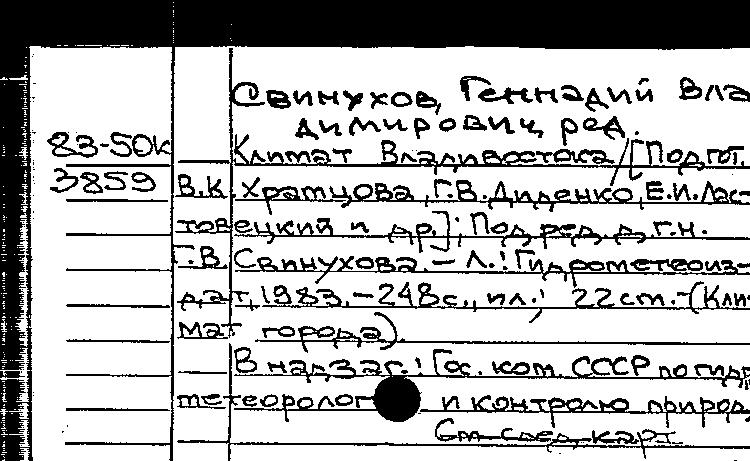 Свинухов, Геннадий Вла-
димирович, ред.
83-50к Климат Владивостока / [Подгот.
3859 В.К. Храмцова, Г.В. Диденко, Е.И. Лас-
товецкий и др.]; Под ред. д.г.н.
Г.В. Свинухова. – Л.: Гидрометеоиз-
дат, 1983. – 248с., ил.; 22 см. – (Кли-
мат города).
В надзаг.: Гос. ком. СССР по гидр
метеоролог и контролю природ
См. след. карт